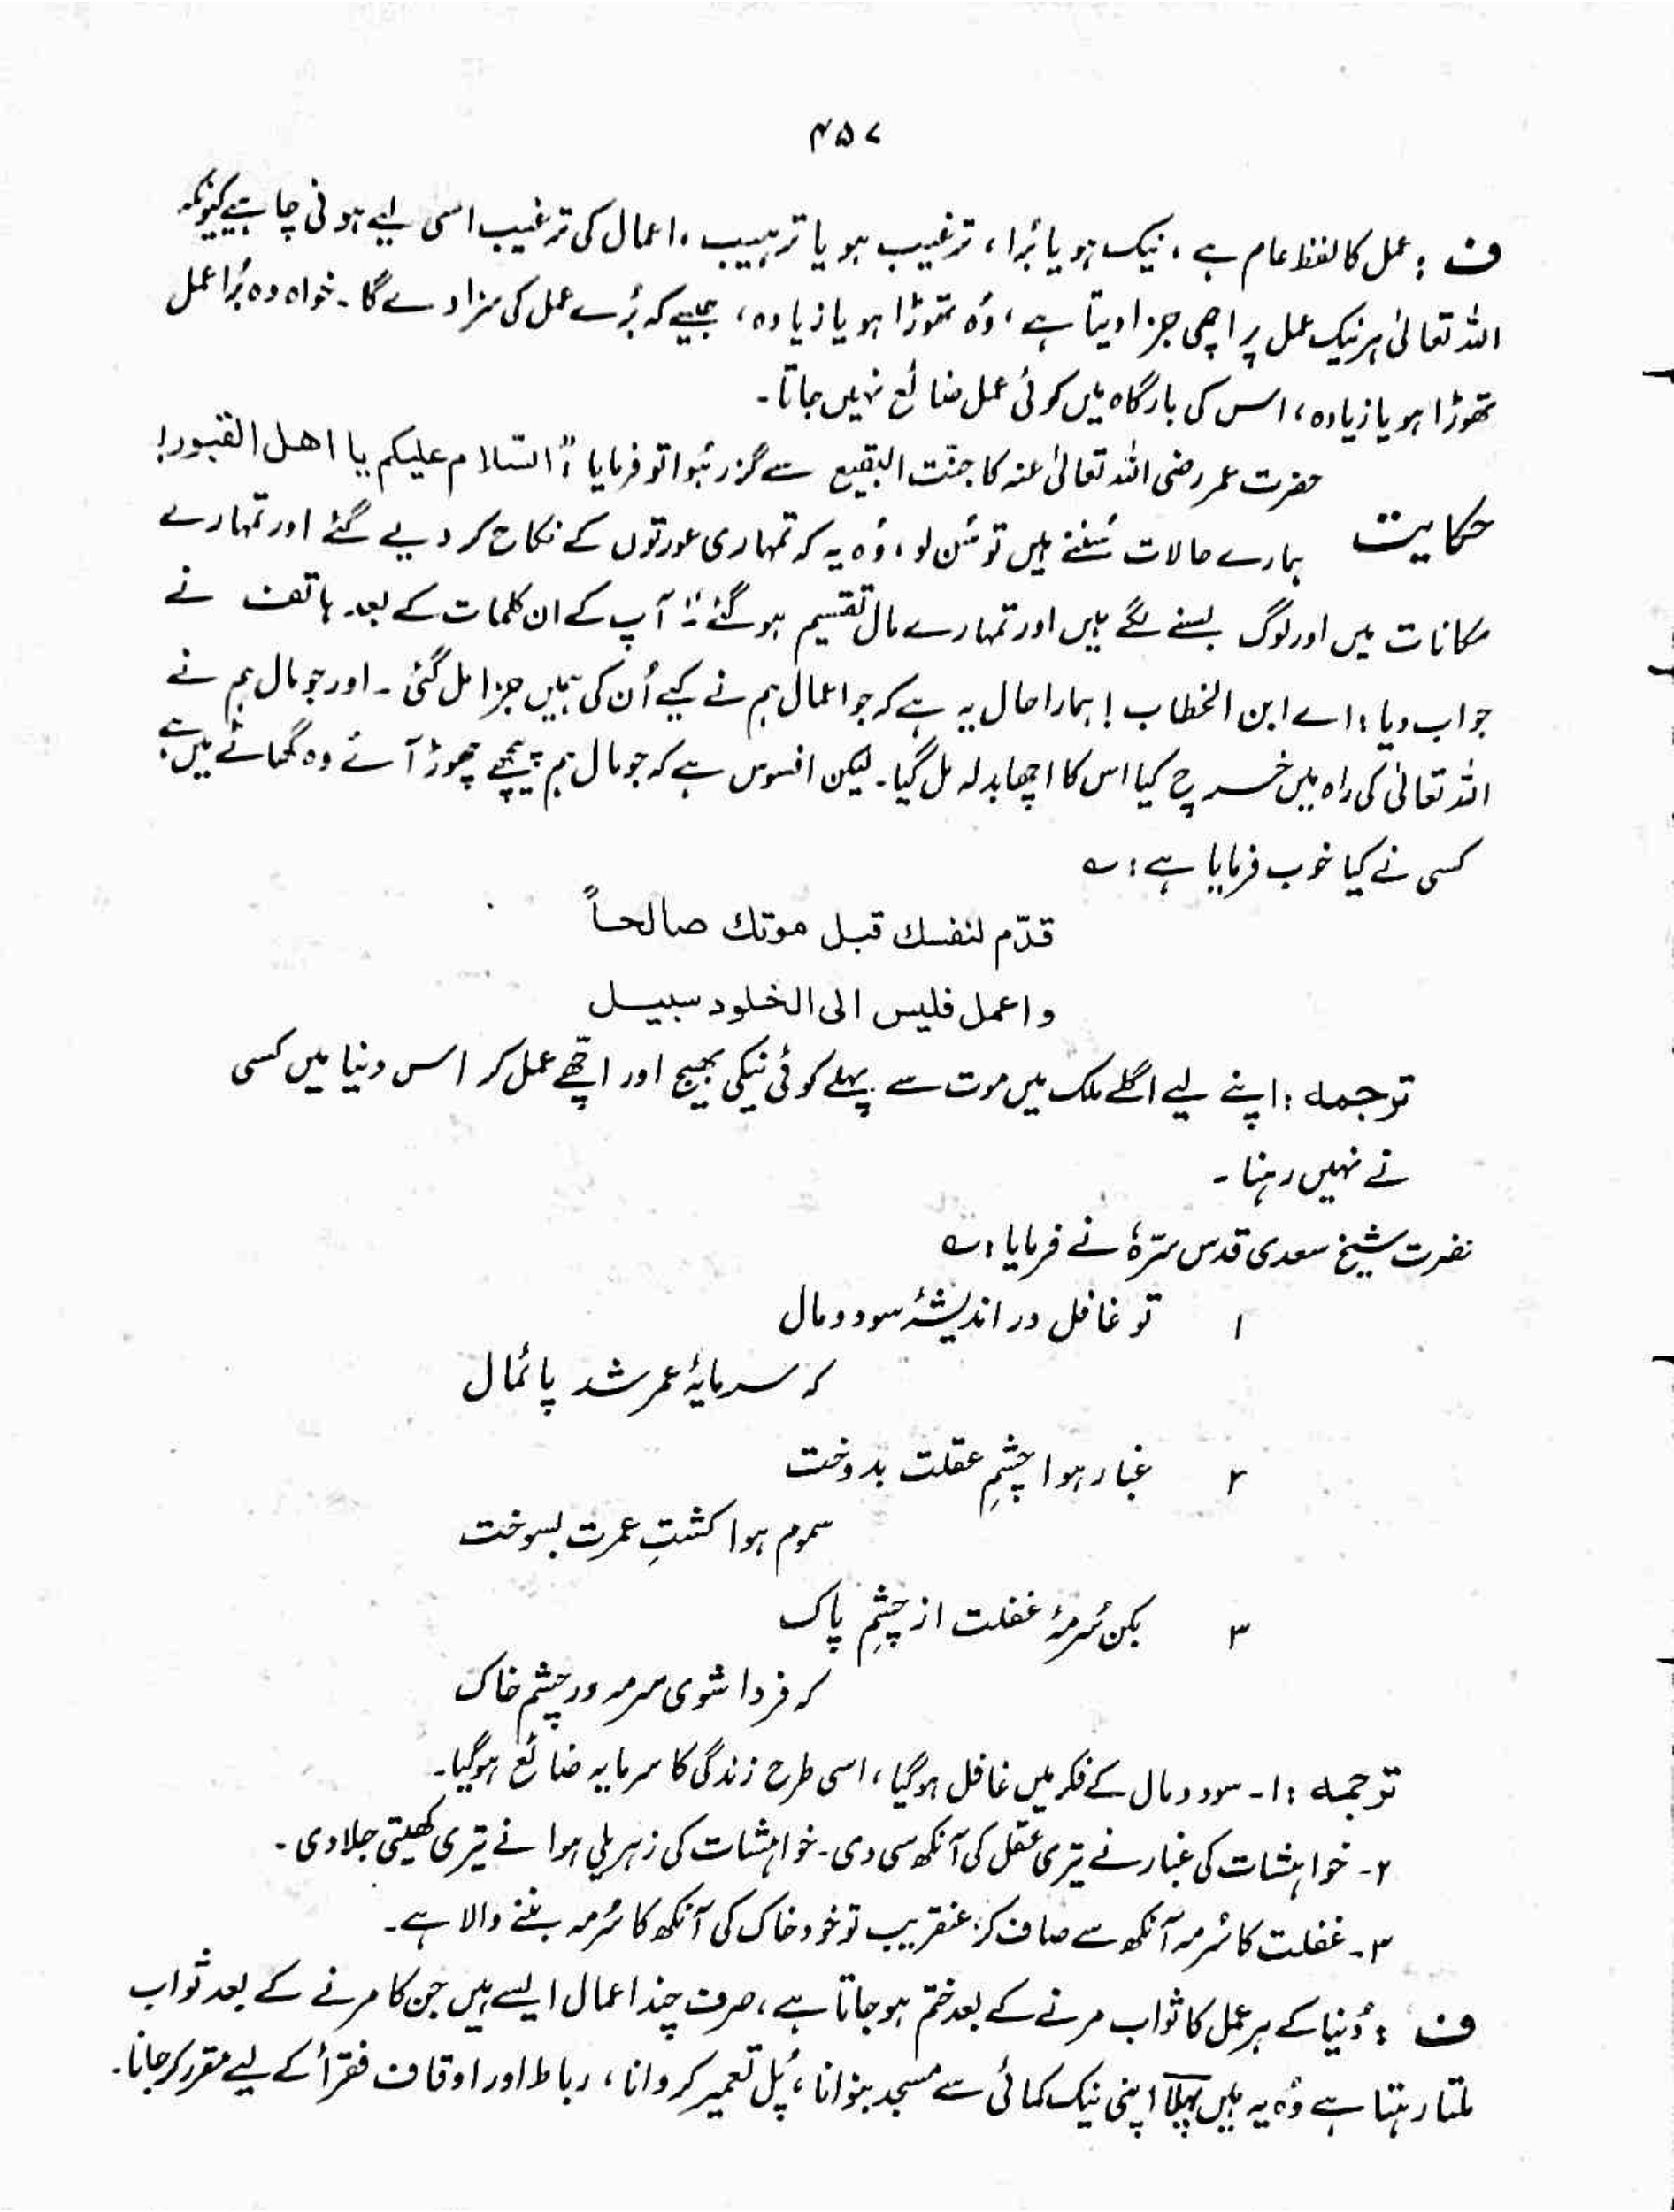 ۴۵۷
ف : عمل کا لفظ عام ہے ، نیک ہو یا بُرا ، ترغیب ہو یا ترہیب ، اعمال کی ترغیب اسی لیے ہونی چاہیے کیونکہ
اللہ تعالیٰ ہر نیک عمل پر اچھی جزا دیتا ہے ، وُہ تھوڑا ہو یا زیادہ ، جیسے کہ بُرے عمل کی سزا دے گا ۔ خواہ وہ بُرا عمل
تھوڑا ہو یا زیادہ ، اس کی بارگاہ میں کوئی عمل ضائع نہیں جاتا ۔
حضرت عمر رضی اللہ تعالیٰ عنہ کا جنّت البقیع سے گزر ہُوا تو فرمایا : "السّلام علیکم یا اھل القبور!
حکایت ہمارے حالات سُنتے ہیں تو سُن لو ، وُہ یہ کہ تمہاری عورتوں کے نکاح کر دیے گئے اور تمہارے
مکانات میں اور لوگ بسنے لگے ہیں اور تمہارے مال تقسیم ہو گئے ۔" آپ کے ان کلمات کے بعد ہاتف نے
جواب دیا : اے ابن الخطاب ! ہمارا حال یہ ہے کہ جو اعمال ہم نے کیے اُن کی ہمیں جزا مل گئی ۔ اور جو مال ہم نے
اللہ تعالیٰ کی راہ میں خرچ کیا اس کا اچھا بدلہ مل گیا ۔ لیکن افسوس ہے کہ جو مال ہم پیچھے چھوڑ آئے وہ گھاٹے میں ہے
کسی نے کیا خوب فرمایا ہے : ؎
قدّم لنفسك قبل موتك صالحاً
واعمل فليس الى الخلود سبيل
ترجمہ : اپنے لیے اگلے ملک میں موت سے پہلے کوئی نیکی بھیج اور اچّھے عمل کر اس دنیا میں کسی
نے نہیں رہنا ۔
حضرت شیخ سعدی قدس سرّہٗ نے فرمایا : ؎
۱ تو غافل در اندیشۂ سود و مال
کہ سرمایۂ عمر شد پائمال
۲ غبار ہوا چشمِ عقلت بدوخت
سموم ہوا کشتِ عمرت بسوخت
۳ بکن سُرمۂ غفلت از چشمِ پاک
کہ فردا شوی سرمہ در چشم خاک
ترجمہ : ۱۔ سود و مال کے فکر میں غافل ہوگیا ، اسی طرح زندگی کا سرمایہ ضائع ہوگیا ۔
۲۔ خواہشات کی غبار نے تیری عقل کی آنکھ سی دی ۔ خواہشات کی زہریلی ہوا نے تیری کھیتی جلا دی ۔
۳۔ غفلت کا سُرمہ آنکھ سے صاف کر ، عنقریب تو خود خاک کی آنکھ کا سُرمہ بننے والا ہے ۔
ف : دُنیا کے ہر عمل کا ثواب مرنے کے بعد ختم ہو جاتا ہے ، صرف چند اعمال ایسے ہیں جن کا مرنے کے بعد ثواب
ملتا رہتا ہے وُہ یہ ہیں اپنی نیک کمائی سے مسجد بنوانا ، پُل تعمیر کروانا ، رباط اور اوقاف فقرأ کے لیے مقرر کر جانا ۔